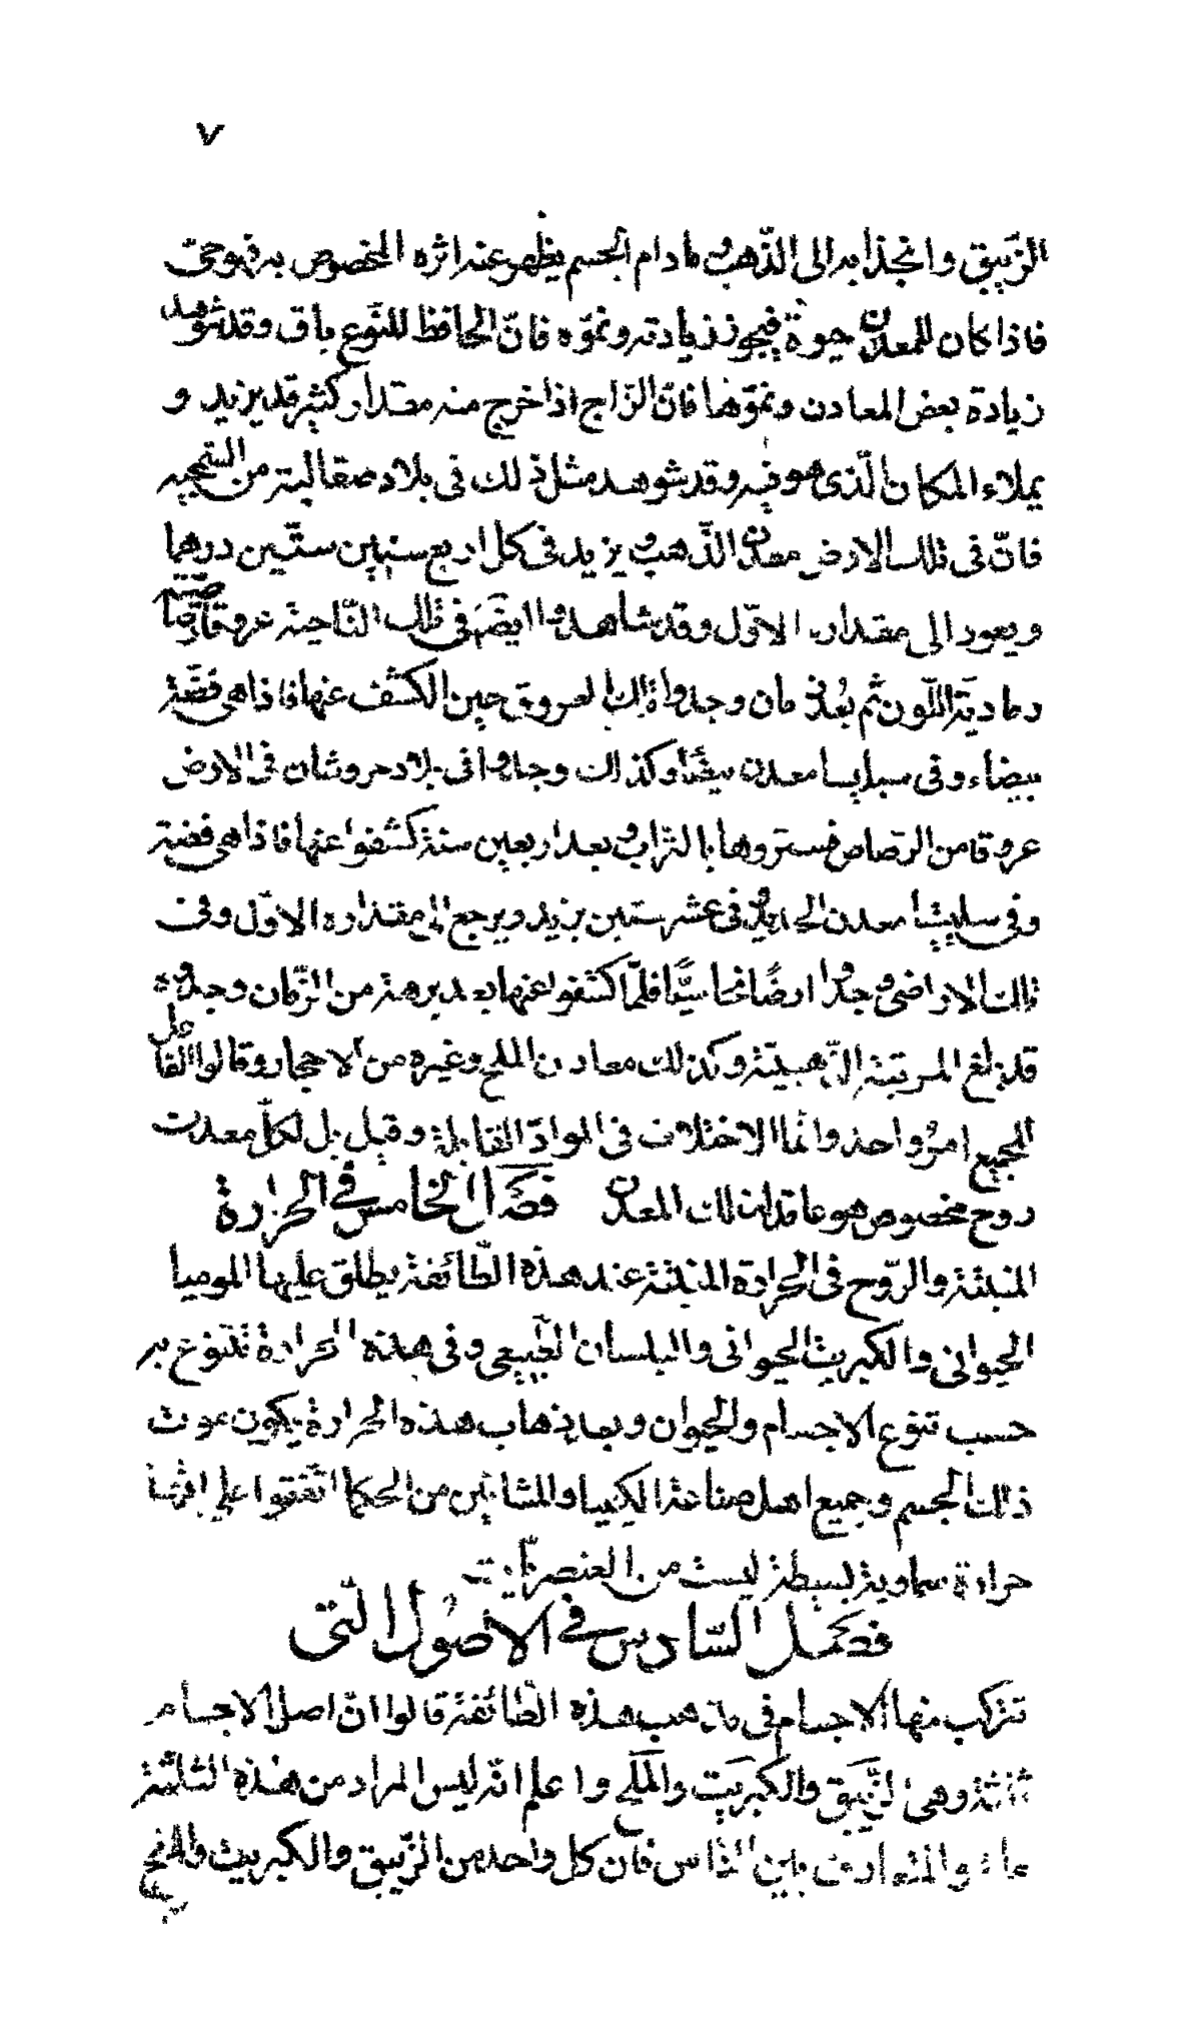 ٧
الزيبق وانجذابه الى الذهب ومادام الجسم يظهر عنه اثره المخصوص به فهو حى
فاذا كان للمعدن حيوة فيجوز زيادته ونموّه فانّ الحافظ للنّوع باق وقد شوهد
زيادة بعض المعادن ونموّها فانّ الزاج اذا خرج منه مقدار كثير قد يزيد و
يملاء المكان الّذى هو فيه وقد شوهد مثل ذلك فى بلاد صقالبة من
فانّ فى تلك الارض معدن الذّهب يزيد فى كل اربع سنين ستّين درهما
ويعود الى مقداره الاوّل وقد شاهدوا ايضا فى تلك النّاحية عروقا
رماديّة اللّون ثم بعد زمان وجدوا تلك العروق حين الكشف عنها فاذا هى فضّة
بيضاء وفى معدن ايضا وكذلك وجدوا فى بلاد فى الارض
عروقا من الرّصاص فستروها بالتراب وبعد اربعين سنة كشفوا عنها فاذا هى فضة
وفى معدن الحديد فى عشر سنين يزيد ويرجع الى مقداره الاوّل وفى
تلك الاراضى وجدوا ارضًا نحاسيًّا فلمّا كشفوا عنها بعد برهة من الزّمان وجدوه
قد بلغ المرتبة الذّهبيّة وكذلك معادن الملح وغيره من الاحجار وقالوا الفاعل
للجميع امرٌ واحد وانّما الاختلاف فى الموادّ القابلة وقيل بل لكلّ معدن
روح مخصوص هو عاقد لذلك المعدن فصل الخامس فى الحرارة
المنبثة والرّوح فى الحرارة المنبثة عند هذه الطّائفة يطلق عليها الموميا
الحيوانى والكبريت الحيوانى والبلسان الطّبيعى وفى هذه الحرارة تتنوّع بر
حسب تنوع الاجسام والحيوان وبعد ذهاب هذه الحرارة يكون موت
ذلك الجسم وجميع اهل صناعة الكيميا والمشائين من الحكما اتّفقوا على انّها
حرارة سماوية بسيطة ليست من العنصريّات
فصل السّادس فى الاصول الّتى
تتركب منها الاجسام فى مذهب هذه الطّائفة قالوا انّ اصل الاجسام
ثلثة وهى الزّيبق والكبريت والملح واعلم انّه ليس المراد من هذه الثلثة
ما هو المتعارف بين النّاس فان كل واحد من الزّيبق والكبريت والملح